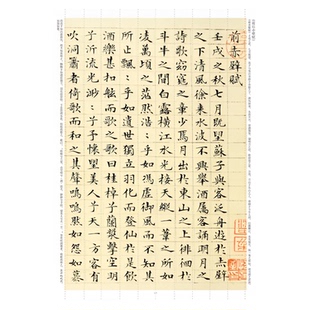 前赤壁賦
壬戌之秋七月既望蘇子與客泛舟遊於赤壁
之下清風徐來水波不興舉酒屬客誦明月之
詩歌窈窕之章少焉月出於東山之上徘徊於
斗牛之間白露橫江水光接天縱一葦之所如
凌萬頃之茫然浩〻乎如馮虛御風而不知其
所止飄〻乎如遺世獨立羽化而登仙於是飲
酒樂甚扣舷而歌之歌曰桂棹兮蘭槳擊空明
兮泝流光渺〻兮予懷望美人兮天一方客有
吹洞簫者倚歌而和之其聲嗚嗚然如怨如慕